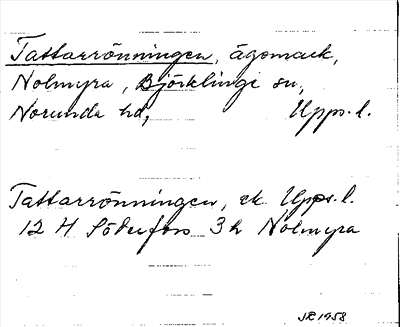 Tattarrönningen, ägomark,
Nolmyra, Björklinge sn,
Norunda hd, Upps. l.
Tattarrönningen, ek. Upps. l.
12 H Söderfors 3 h Nolmyra
JR 1958